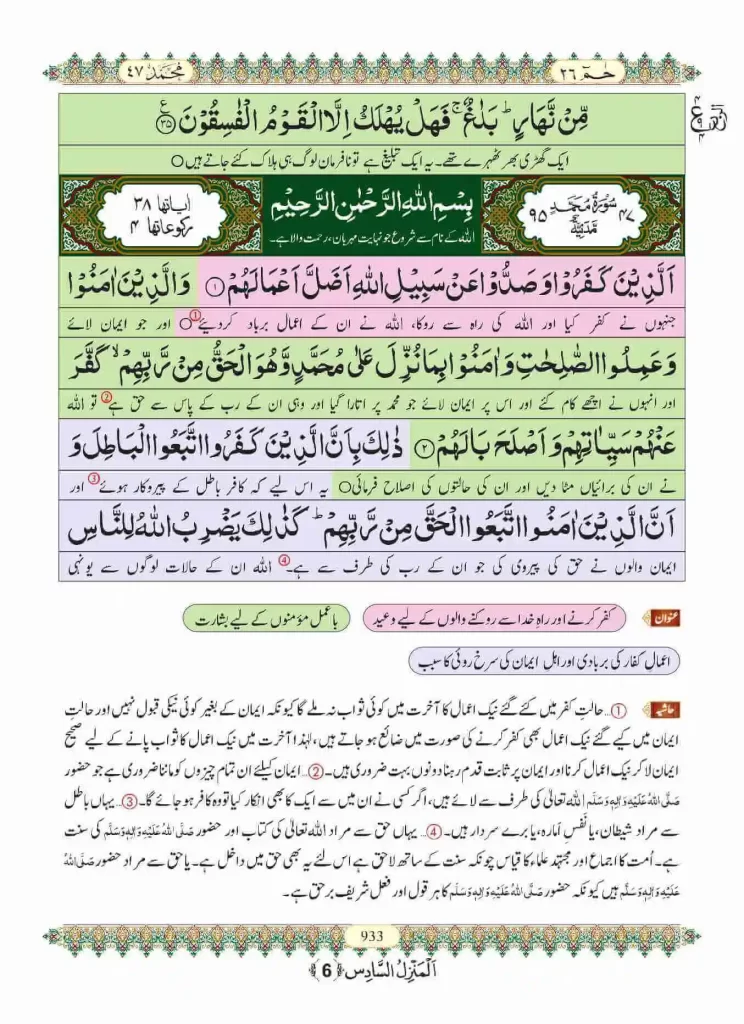 حٰمٓ ٢٦
محمد ٤٧
مِّنْ نَّهَارٍ ؕ بَلٰغٌ ۚ فَهَلْ یُهْلَكُ اِلَّا الْقَوْمُ الْفٰسِقُوْنَ ﴿۳۵﴾ ع
ایک گھڑی بھر ٹھہرے تھے۔ یہ ایک تبلیغ ہے تو نافرمان لوگ ہی ہلاک کئے جاتے ہیں○
٤٧ سُوْرَةُ مُحَمَّدٍ مَّدَنِیَّةٌ ٩٥
بِسْمِ اللّٰهِ الرَّحْمٰنِ الرَّحِیْمِ
اللہ کے نام سے شروع جو نہایت مہربان، رحمت والا ہے۔
اٰیاتها ٣٨
رکوعاتها ٤
اَلَّذِیْنَ كَفَرُوْا وَ صَدُّوْا عَنْ سَبِیْلِ اللّٰهِ اَضَلَّ اَعْمَالَهُمْ ﴿۱﴾ وَ الَّذِیْنَ اٰمَنُوْا
جنہوں نے کفر کیا اور اللہ کی راہ سے روکا، اللہ نے ان کے اعمال برباد کردیئے①○ اور جو ایمان لائے
وَ عَمِلُوا الصّٰلِحٰتِ وَ اٰمَنُوْا بِمَا نُزِّلَ عَلٰى مُحَمَّدٍ وَّ هُوَ الْحَقُّ مِنْ رَّبِّهِمْ ۙ كَفَّرَ
اور انہوں نے اچھے کام کئے اور اس پر ایمان لائے جو محمد پر اتارا گیا اور وہی ان کے رب کے پاس سے حق ہے② تو اللہ
عَنْهُمْ سَیِّاٰتِهِمْ وَ اَصْلَحَ بَالَهُمْ ﴿۲﴾ ذٰلِكَ بِاَنَّ الَّذِیْنَ كَفَرُوا اتَّبَعُوا الْبَاطِلَ وَ
نے ان کی برائیاں مٹا دیں اور ان کی حالتوں کی اصلاح فرمائی○ یہ اس لیے کہ کافر باطل کے پیروکار ہوئے③ اور
اَنَّ الَّذِیْنَ اٰمَنُوا اتَّبَعُوا الْحَقَّ مِنْ رَّبِّهِمْ ؕ كَذٰلِكَ یَضْرِبُ اللّٰهُ لِلنَّاسِ
ایمان والوں نے حق کی پیروی کی جو ان کے رب کی طرف سے ہے۔④ اللہ ان کے حالات لوگوں سے یونہی
عنوان کفر کرنے اور راہِ خدا سے روکنے والوں کے لیے وعید باعمل مؤمنوں کے لیے بشارت
اعمالِ کفار کی بربادی اور اہلِ ایمان کی سرخروئی کا سبب
حاشیہ ①… حالتِ کفر میں کئے گئے نیک اعمال کا آخرت میں کوئی ثواب نہ ملے گا کیونکہ ایمان کے بغیر کوئی نیکی قبول نہیں اور حالتِ
ایمان میں کیے گئے نیک اعمال بھی کفر کرنے کی صورت میں ضائع ہو جاتے ہیں، لہٰذا آخرت میں نیک اعمال کا ثواب پانے کے لیے صحیح
ایمان لا کر نیک اعمال کرنا اور ایمان پر ثابت قدم رہنا دونوں بہت ضروری ہیں۔ ②… ایمان کیلئے ان تمام چیزوں کو ماننا ضروری ہے جو حضور
صَلَّی اللهُ عَلَیْهِ وَاٰلِهٖ وَسَلَّم اللہ تعالیٰ کی طرف سے لائے ہیں، اگر کسی نے ان میں سے ایک کا بھی انکار کیا تو وہ کافر ہو جائے گا۔ ③… یہاں باطل
سے مراد شیطان، یا نفسِ امارہ، یا برے سردار ہیں۔ ④… یہاں حق سے مراد اللہ تعالیٰ کی کتاب اور حضور صَلَّی اللهُ عَلَیْهِ وَاٰلِهٖ وَسَلَّم کی سنت
ہے۔ اُمت کا اجماع اور مجتہد علماء کا قیاس چونکہ سنت کے ساتھ لاحق ہے اس لئے یہ بھی حق میں داخل ہے۔ یا حق سے مراد حضور صَلَّی اللهُ
عَلَیْهِ وَاٰلِهٖ وَسَلَّم ہیں کیونکہ حضور صَلَّی اللهُ عَلَیْهِ وَاٰلِهٖ وَسَلَّم کا ہر قول اور فعل شریف برحق ہے۔
933
اَلْمَنْزِلُ السَّادِس ﴿6﴾